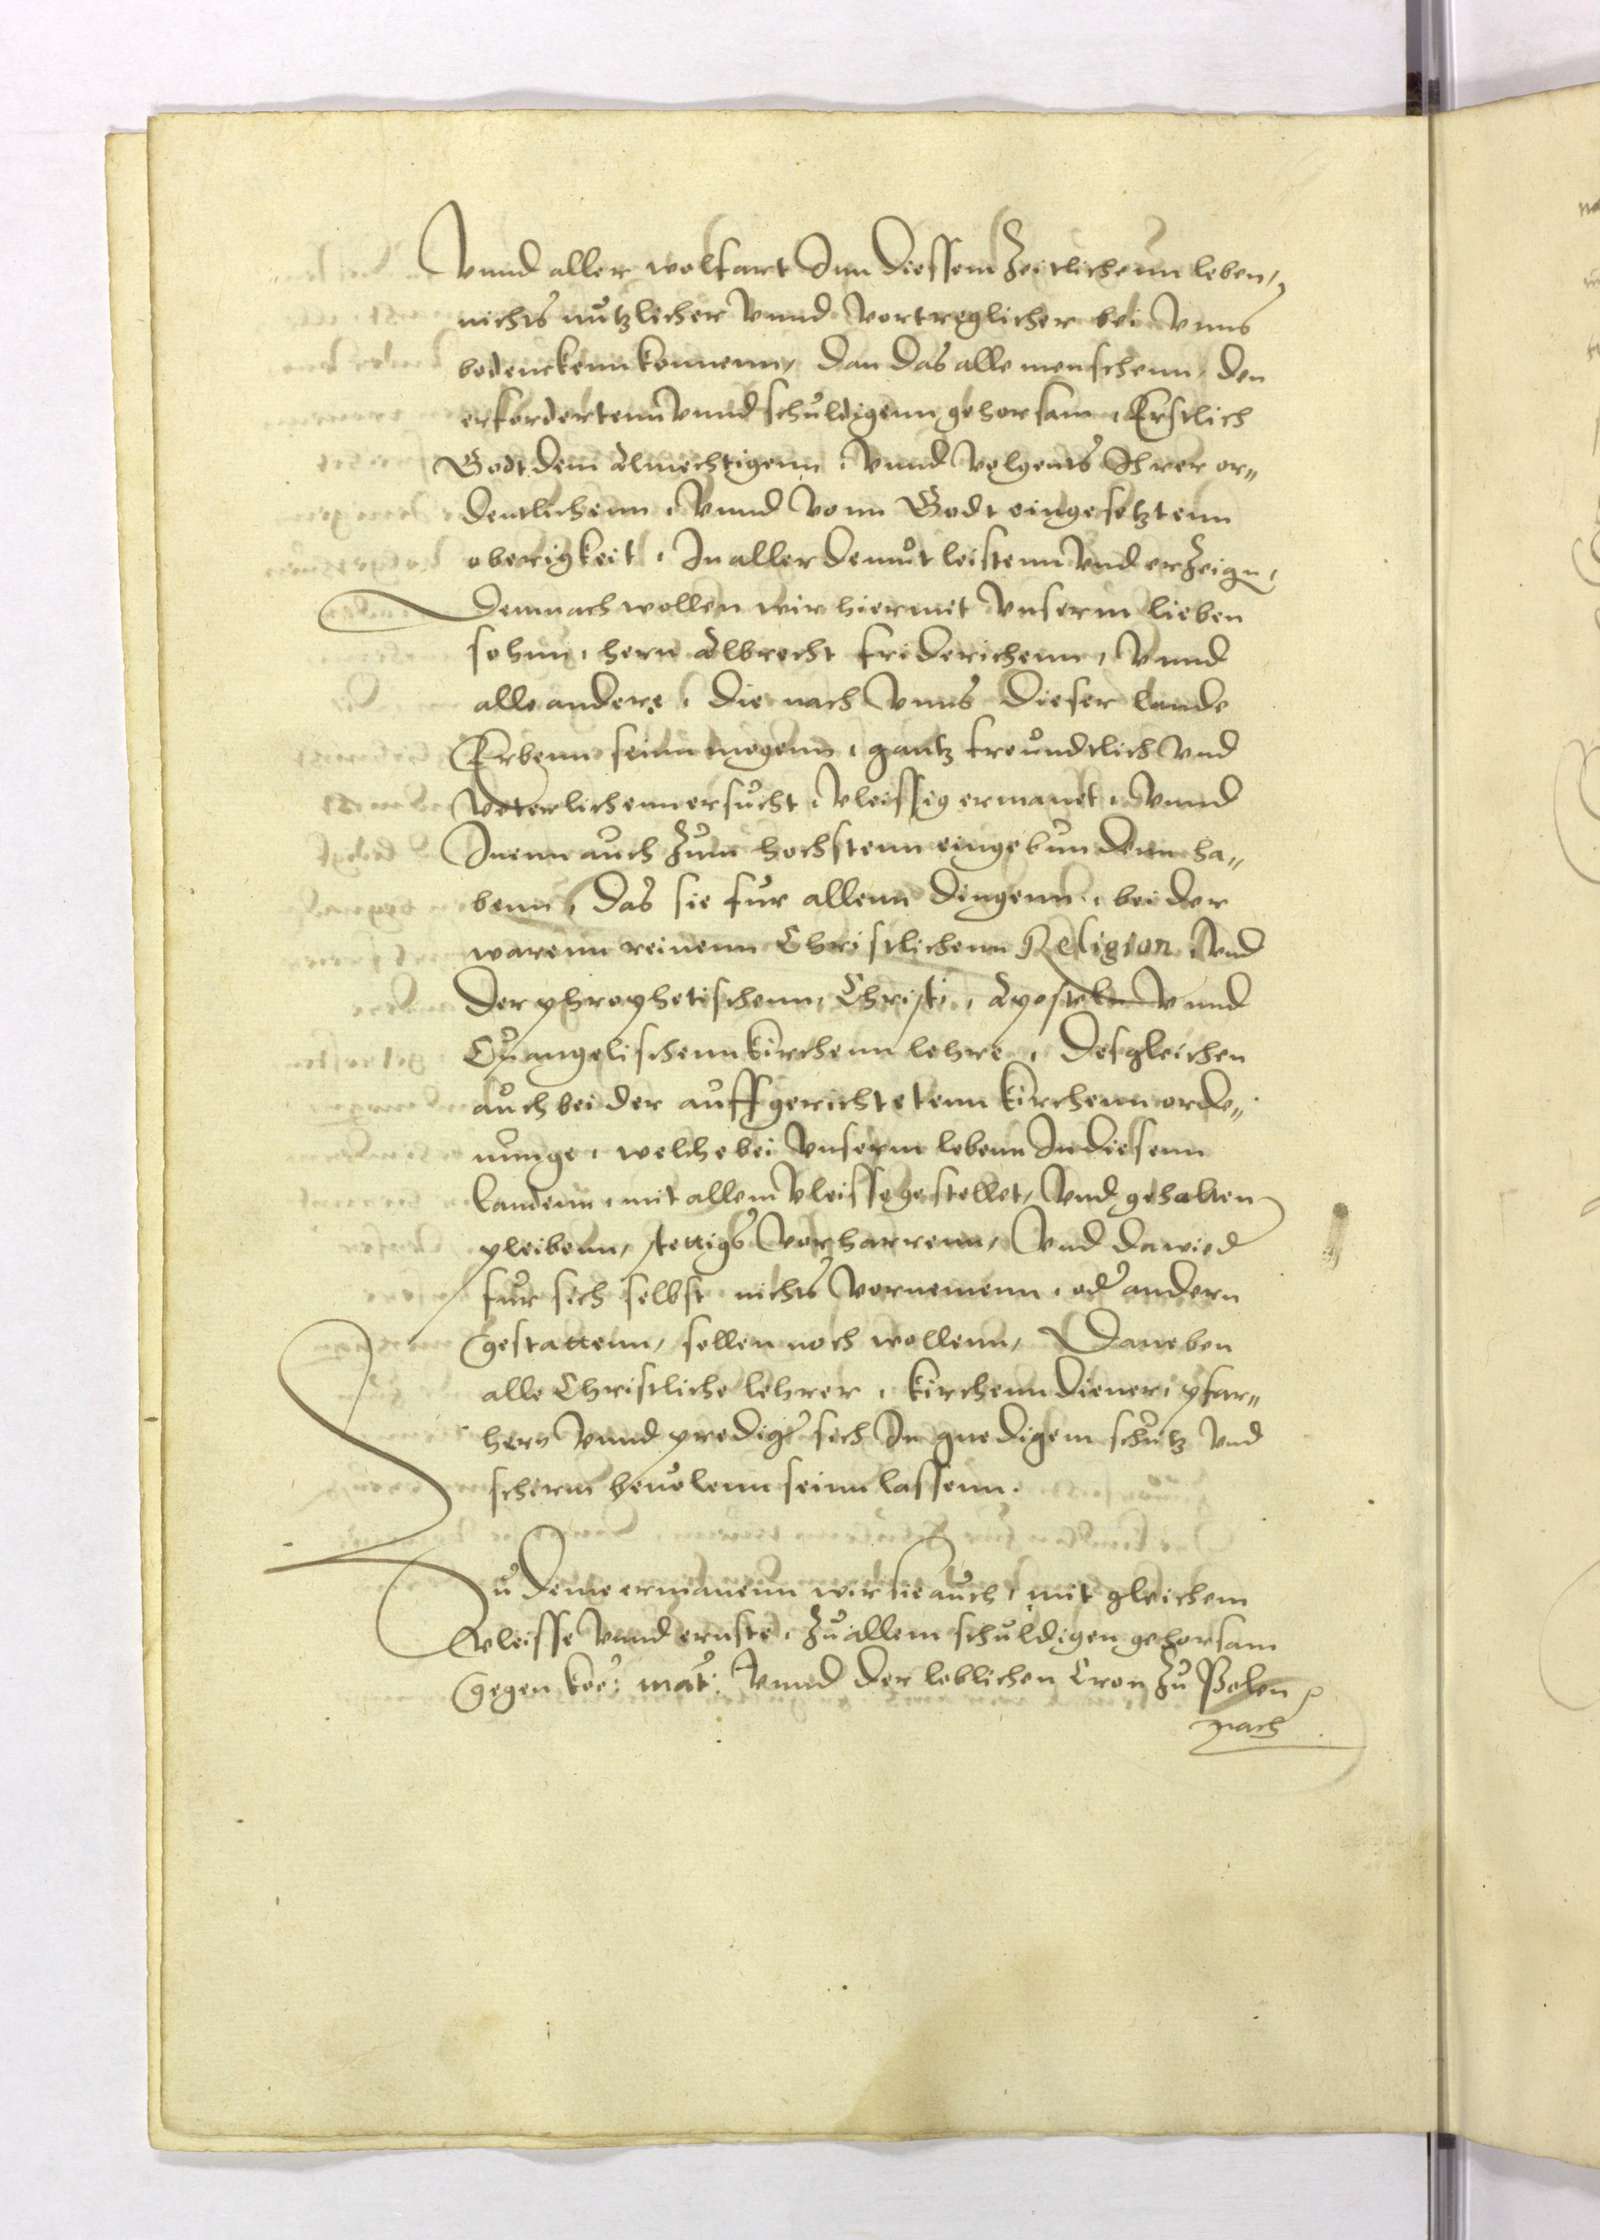 Vnnd aller wolfart Inn diessem Zeitlichenn leben,
nichts nutzlicher Vnnd Vortreglicher bei Vnns
bedenckenn konnenn, dan das alle menschenn, den
erfordertenn Vnnd schuldigenn gehorsam, Erstlich
Godt dem Almechtigenn, Vnnd Volgents Ihrer or„
dentlichenn, Vnnd Vonn Godt eingesetztenn
oberigkeit, In aller demut leistenn Vnd erZeign,
Demnach wollen wir hiermet Vnserm lieben
sohnn, hern Albrecht friderichenn, Vnnd
alle andere, die nach Vnns dieser lande
Erbenn seinn mogenn, gantz freundtlich Vnd
Veterlichenn ersucht, Vleissig ermanet, Vnnd
Inenn auch Zum hochstenn eingebundenn ha„
benn, das sie fur allenn dingenn, bei der
warenn reinenn Christlichenn Religion, Vnd
der phrophetischenn, Christi, Aposteln Vnnd
Euangelischenn kirchenn lehre, desgleichen
auch bei der auffgerichtetenn kirchenn orde„
nunge, welche bei Vnserm lebenn In diesenn
landenn, mit allem Vleisse gestellet, Vnd gehalten
pleibenn, stettigs Vorharrenn, Vnd dawied
fur sich selbst nichts Vornemenn, od andern
gestattenn, sollen noch wollenn, Daneben
alle Christliche lehrer, kirchenn diener, pfar„
hern Vnnd prediger sich In gnedigem schutz Vnd
schirm beuolenn seinn lassenn.
Zu deme ermanenn wir sie auch, mit gleichem
Vleisse Vnnd ernste, Zu allem schuldigen gehorsam
gegen koe: mat: Vnnd der loblichen Cron Zu Polen
nach